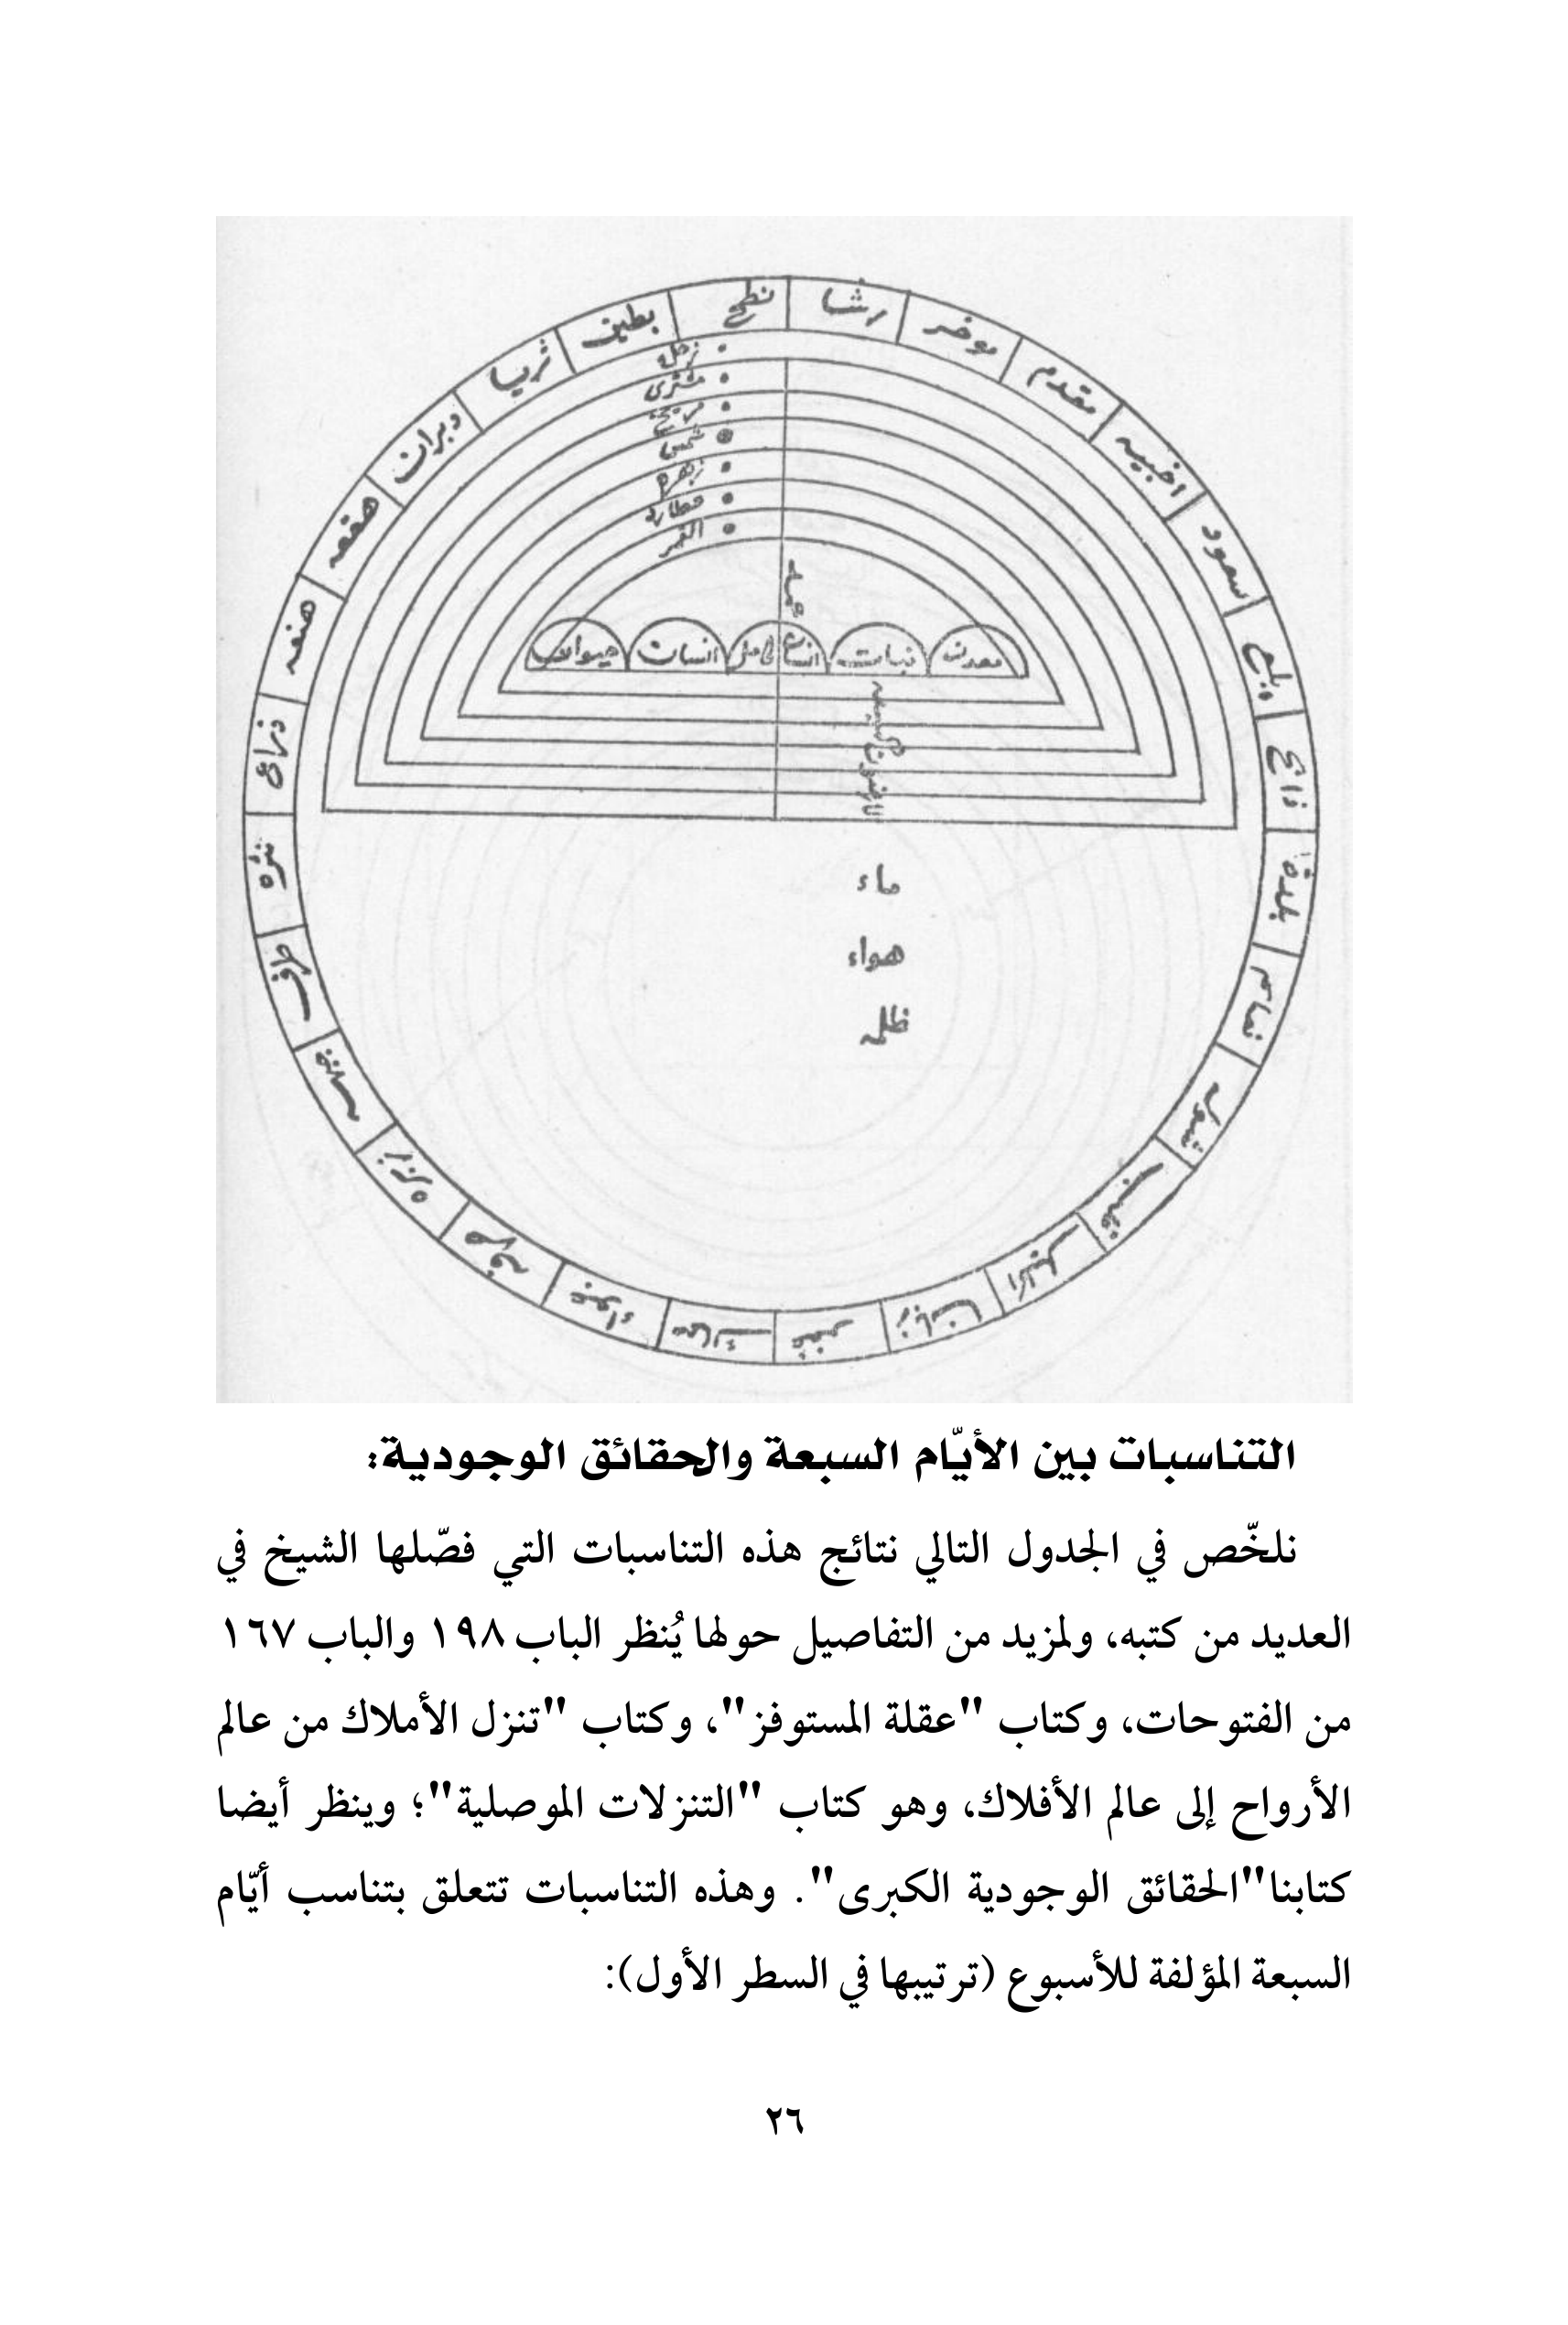 نطح
بطين
ثريا
دبران
هقعه
هنعه
ذراع
نثره
طرف
زبره
صرفه
عواء
سماك
غفر
زبانا
اكليل
قلب
شوله
نعايم
بلدة
ذابح
بلع
سعود
اخبيه
مقدم
موخر
رشا
زحل
مشترى
مريخ
شمس
زهره
عطارد
القمر
معدن
نبات
انسان
حيوان
ماء
هواء
ظلمه
التناسبات بين الأيّام السبعة والحقائق الوجودية:
نلخّص في الجدول التالي نتائج هذه التناسبات التي فصّلها الشيخ في
العديد من كتبه، ولمزيد من التفاصيل حولها يُنظر الباب ١٩٨ والباب ١٦٧
من الفتوحات، وكتاب "عقلة المستوفز"، وكتاب "تنزل الأملاك من عالم
الأرواح إلى عالم الأفلاك، وهو كتاب "التنزلات الموصلية"؛ وينظر أيضا
كتابنا"الحقائق الوجودية الكبرى". وهذه التناسبات تتعلق بتناسب أيّام
السبعة المؤلفة للأسبوع (ترتيبها في السطر الأول):
٢٦